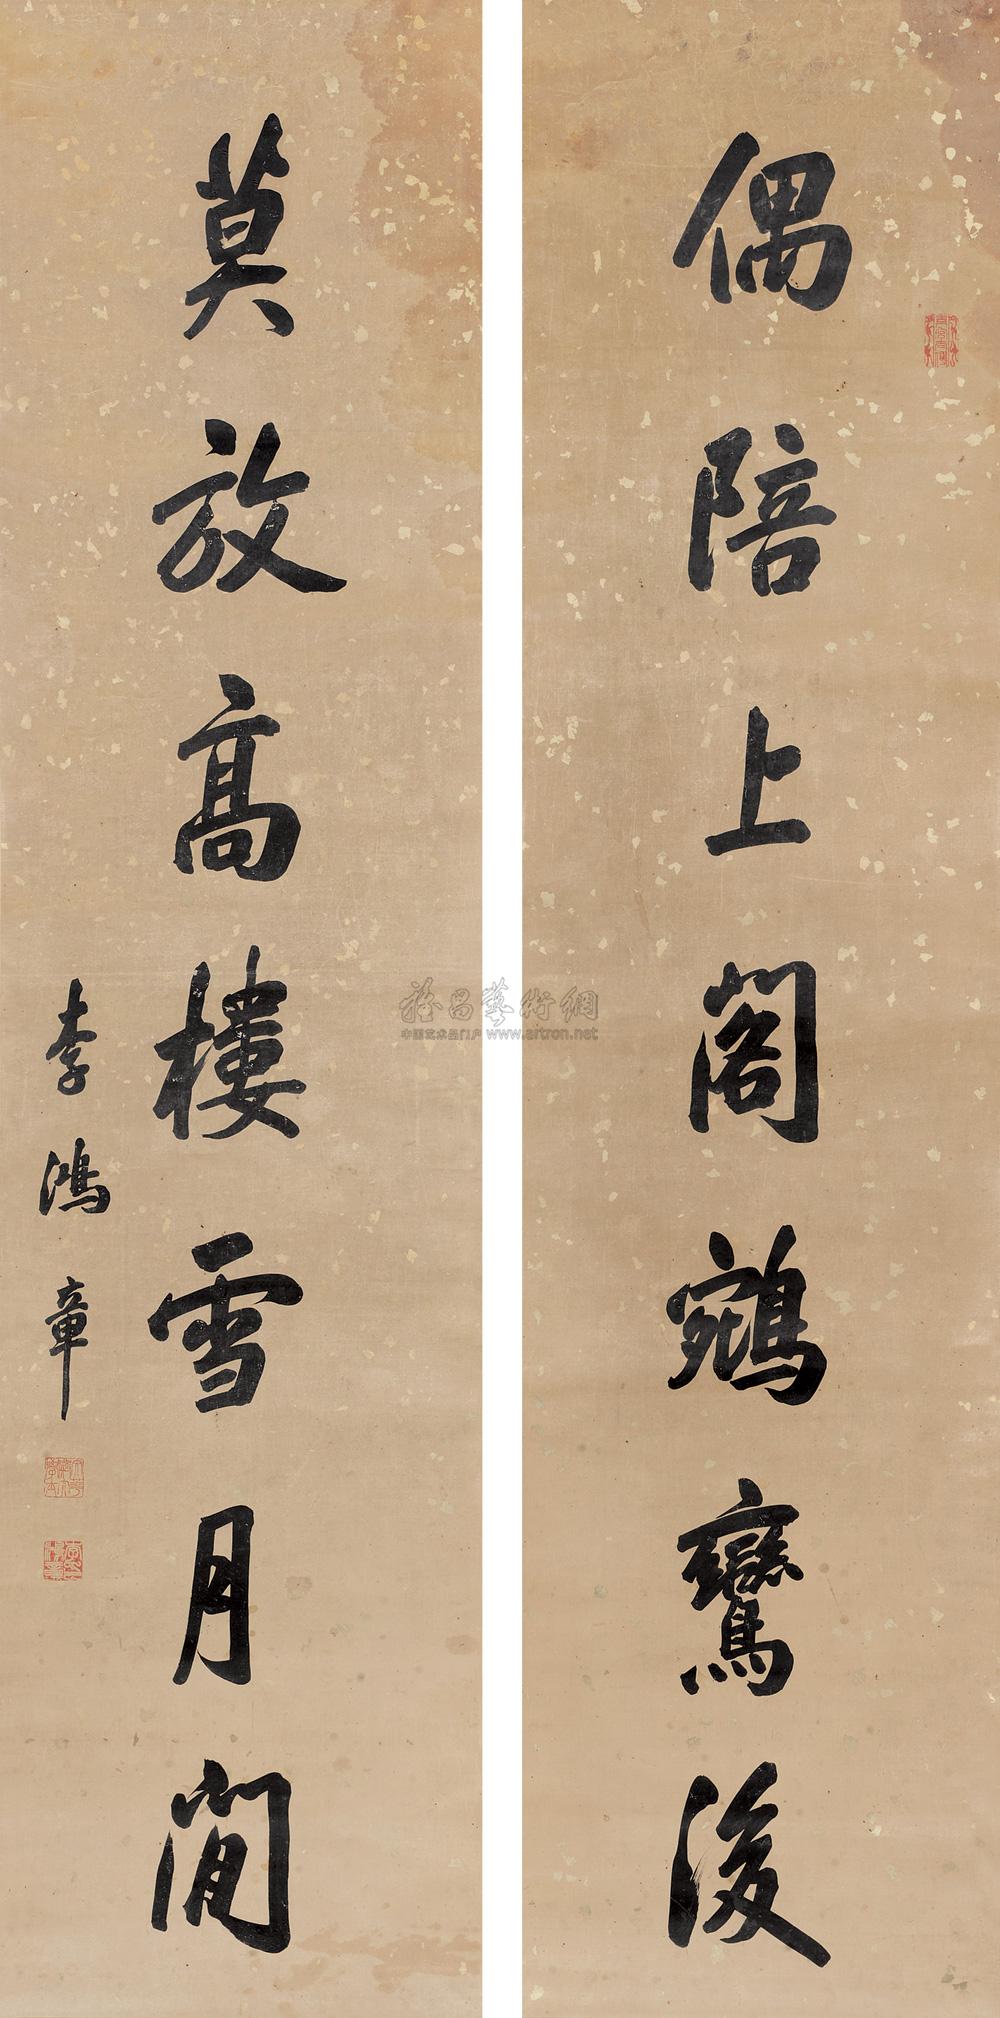 偶陪上閣鵷鸞後
莫放高樓雪月閒
李鴻章
雅昌藝術網
中国艺术品门户 www.artron.net